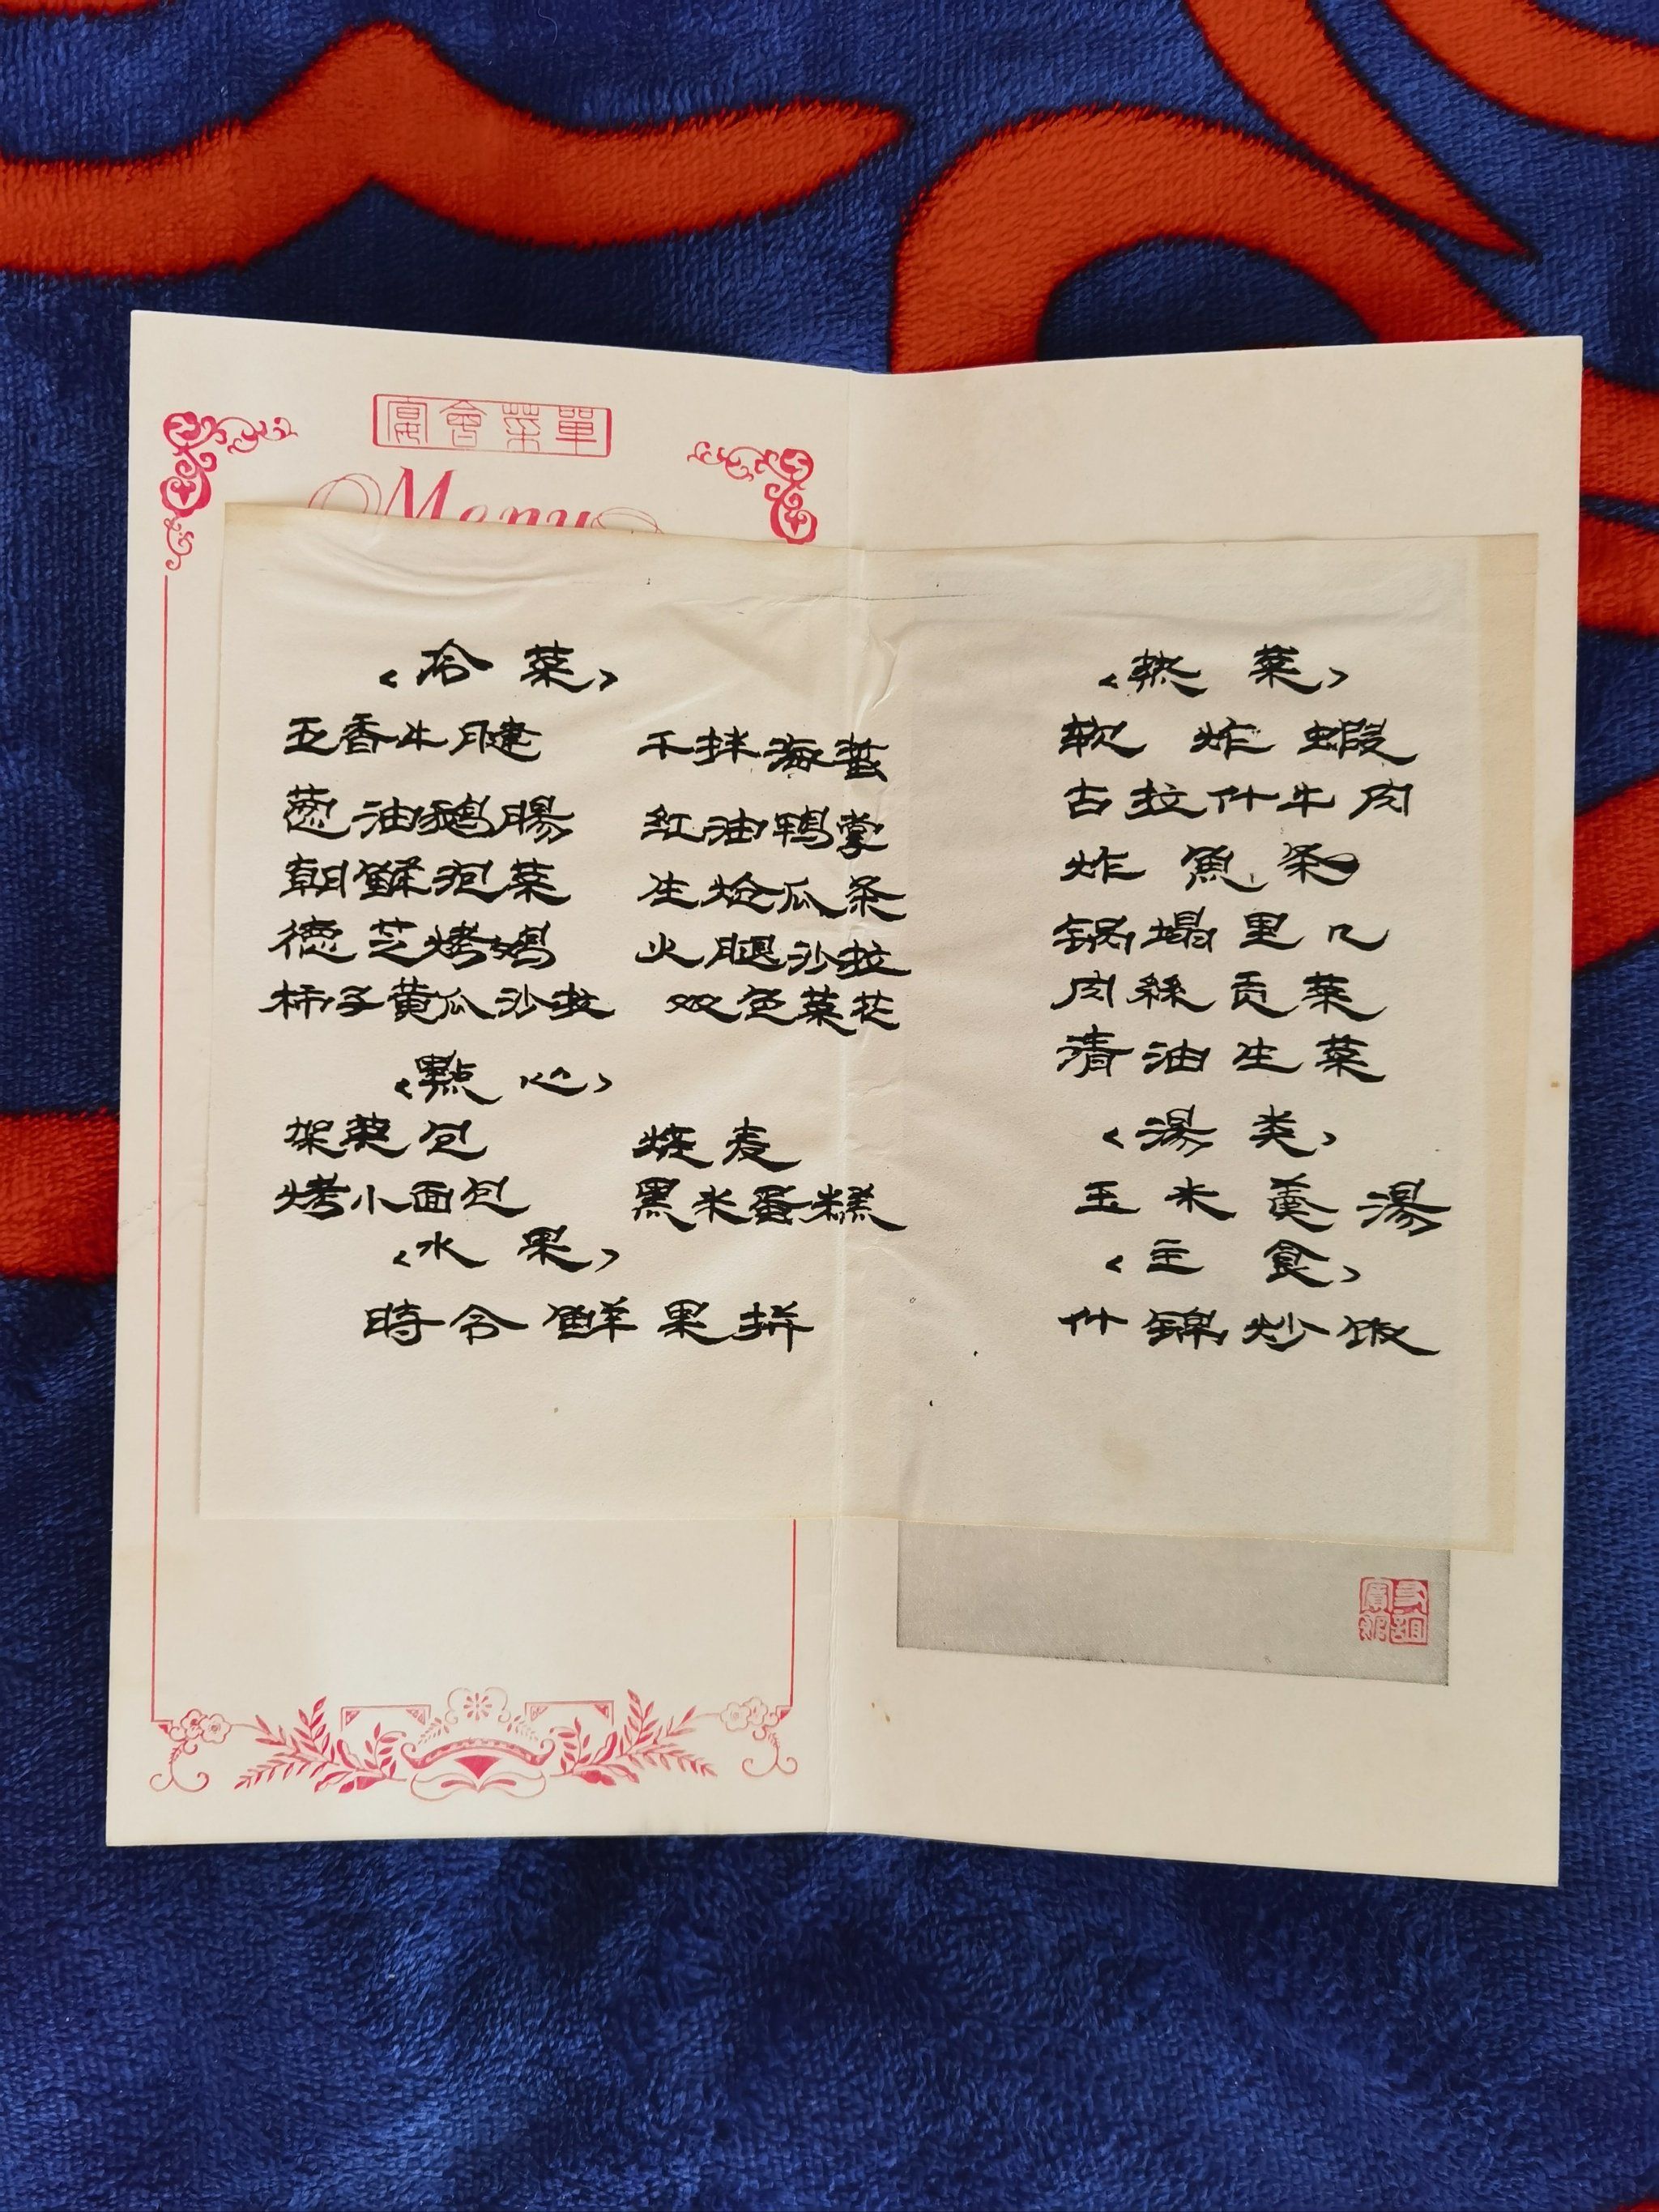 宴會菜單
Menu
<冷 菜>
五香牛腱 干拌海蜇
葱油鹅腸 红油鸭掌
朝鮮泡菜 生炝瓜条
德芝烤鸡 火腿沙拉
柿子黄瓜沙拉 双色菜花
<點 心>
架英包 烧麦
烤小面包 黑米蛋糕
<水 果>
時令鮮果拼
<热 菜>
软炸蝦
古拉什牛肉
炸魚条
锅塌里几
肉絲贡菜
清油生菜
<湯 类>
玉米羹湯
<主 食>
什锦炒饭
友誼賓館